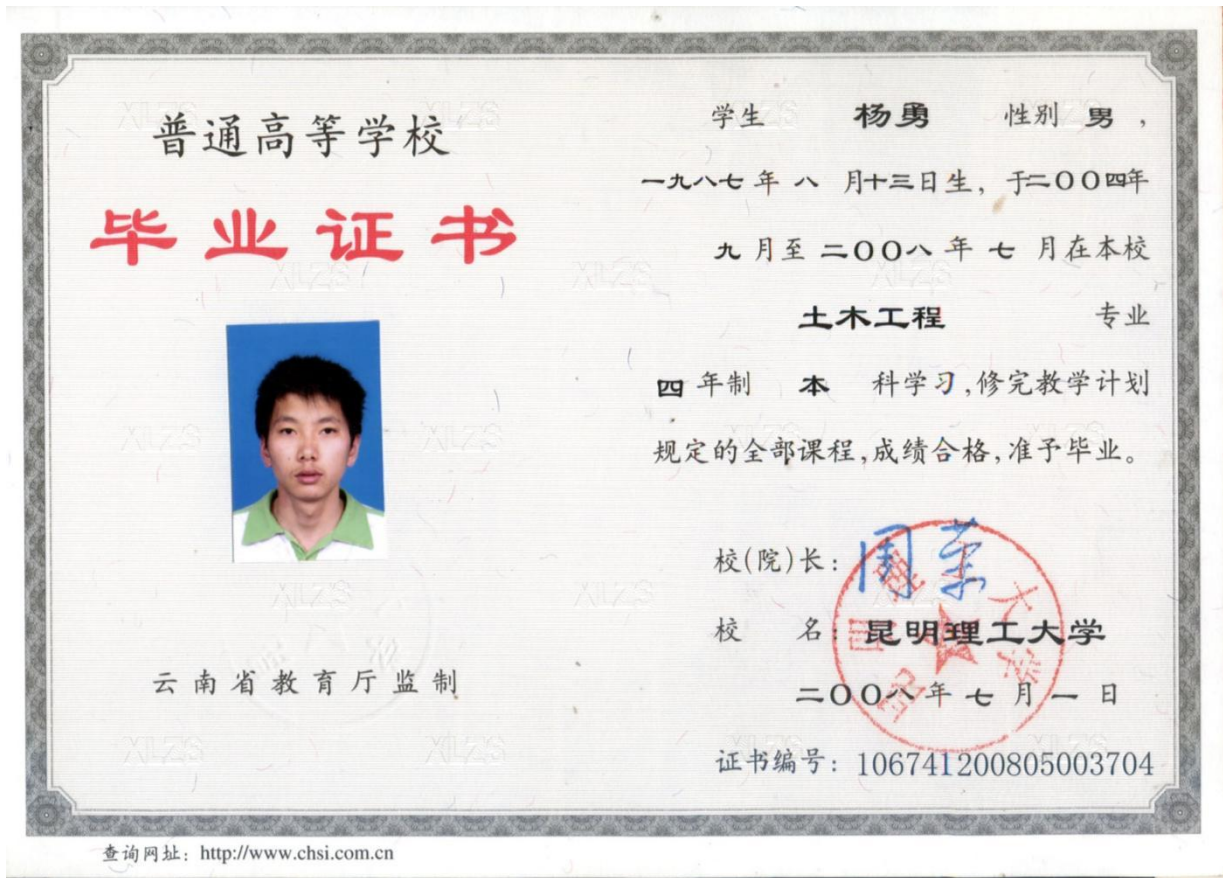 普通高等学校
毕业证书
云南省教育厅监制
学生 杨勇 性别 男，
一九八七年八月十三日生，于二〇〇四年
九月至二〇〇八年七月在本校
土木工程 专业
四年制 本 科学习，修完教学计划
规定的全部课程，成绩合格，准予毕业。
校（院）长：周荣
校 名：昆明理工大学
昆明理工大学
二〇〇八年七月一日
证书编号：106741200805003704
查询网址：http://www.chsi.com.cn
XLZS